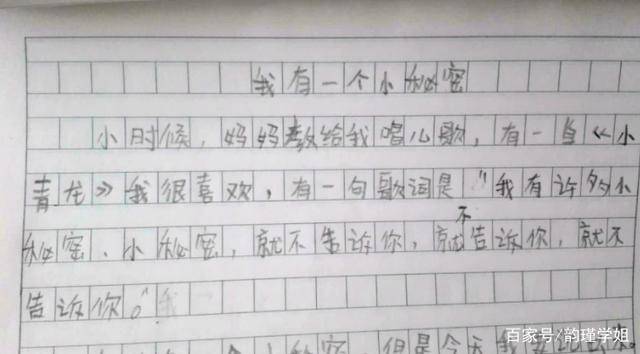 我有一个小秘密
小时候，妈妈教给我唱儿歌，有一首《小
青龙》我很喜欢，有一句歌词是"我有许多小
秘密、小秘密，就不告诉你，就不告诉你，就不
告诉你。"
个小秘密 但是今天我
百家号/韵瑾学姐